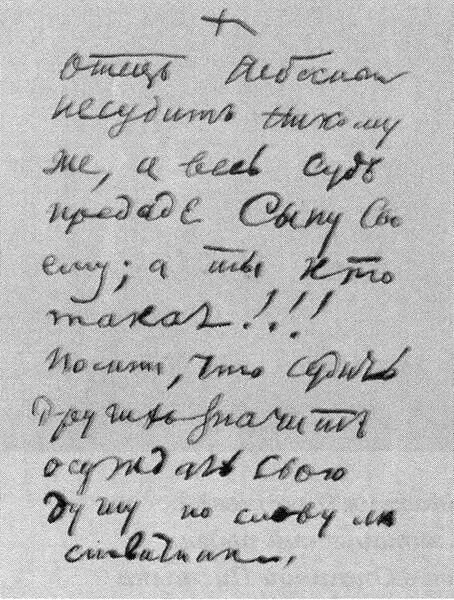 Отецъ Небесный
несудитъ Никому
же, а весь судъ
предаде Сыну Сво
ему; а ты кто
такая!!!
Помни, что судить
Другихъ значитъ
осуждать свою
душу по слову